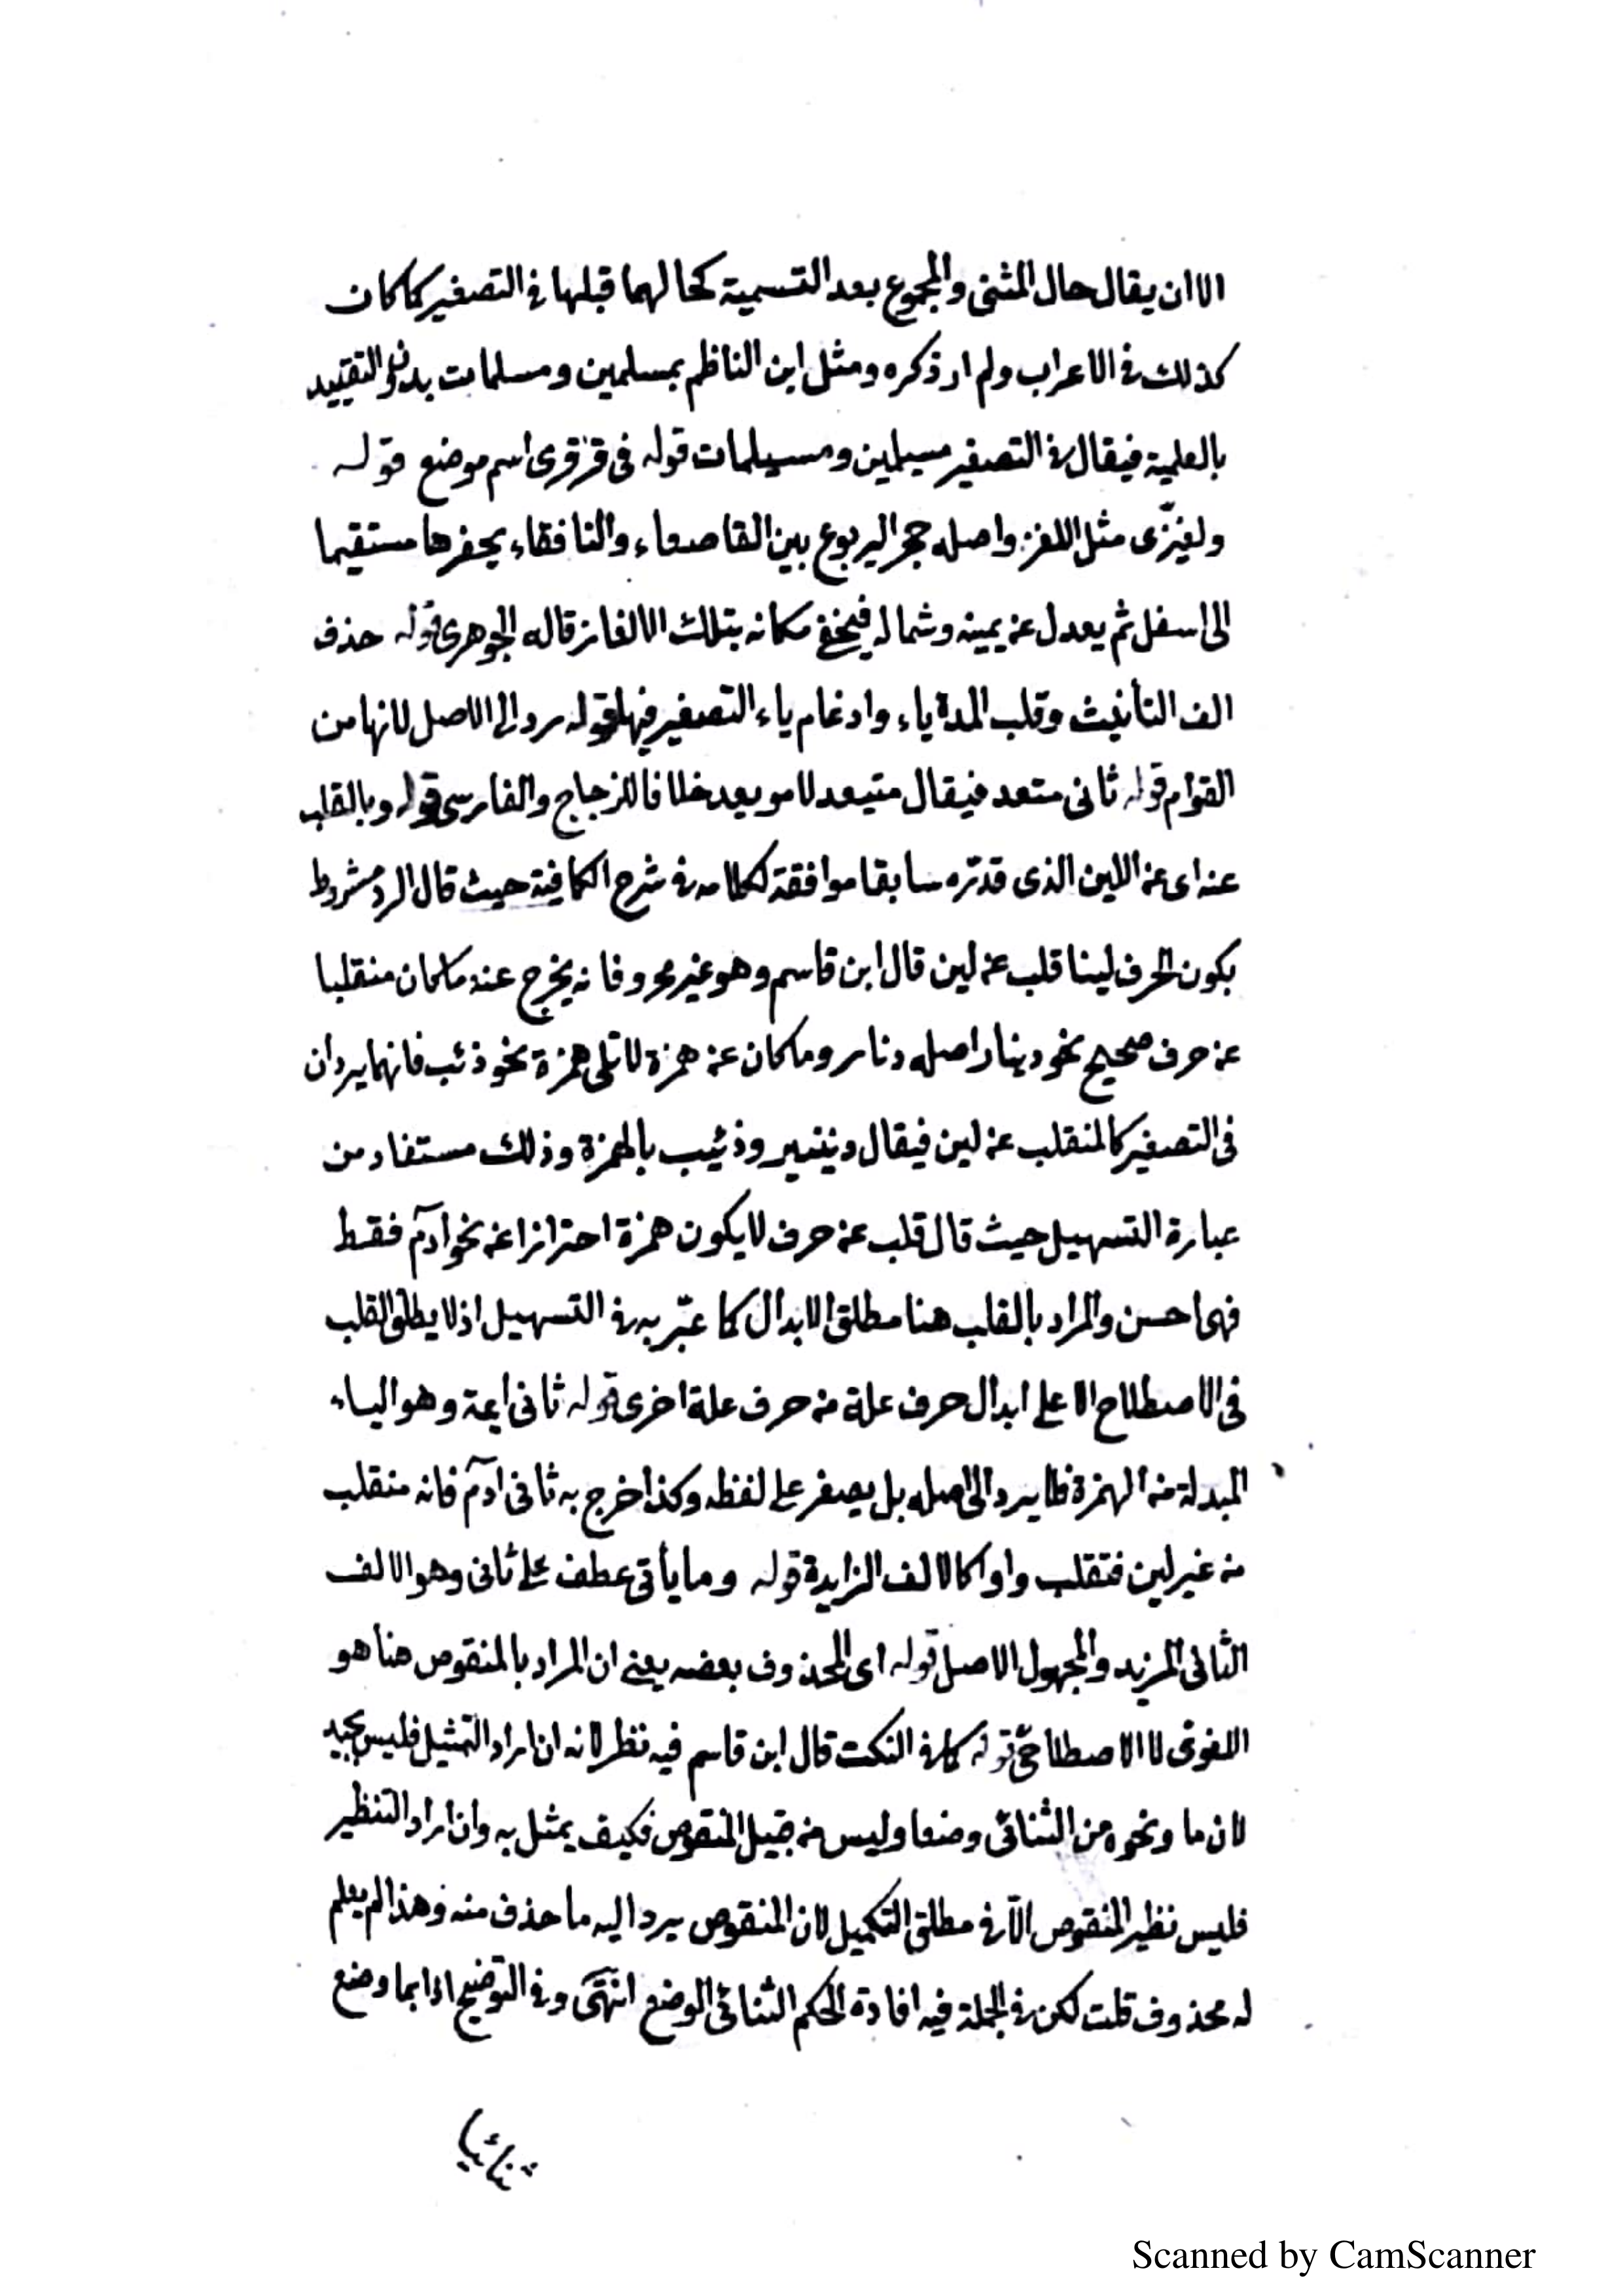 الا ان يقال حال المثنى والمجموع بعد التسمية كحالهما قبلها في التصغير كما كان
كذلك في الاعراب ولم ار ذكره ومثل ابن الناظم بمسلمين ومسلمات بدون التقييد
بالعلمية فيقال في التصغير مسيلمين ومسيلمات قوله في قرقرى اسم موضع قوله
ولغيزى مثل اللغز واصله جحر اليربوع بين القاصعاء والنافقاء يحفرها مستقيما
الى اسفل ثم يعدل عن يمينه وشماله فيخفى مكانه بتلك الالغاز قاله الجوهرى قوله حذف
الف التأنيث وقلب المدة ياء وادغام ياء التصغير فيها قوله رد الى الاصل لانها من
القوام قوله ثانى متعد فيقال متيعد لا مويعد خلافا للزجاج والفارسى قوله وبالقلب
عنه اى عن اللين الذى قدره سابقا موافقة لكلامه في شرح الكافية حيث قال الرد مشروط
بكون الحرف لينا قلب عن لين قال ابن قاسم وهو غير محرر فانه يخرج عنه ما كان منقلبا
عن حرف صحيح نحو دينار اصله دنار وما كان عن همزة لا تلى همزة نحو ذئب فانهما يردان
في التصغير كالمنقلب عن لين فيقال دنينير وذئيب بالهمزة وذلك مستفاد من
عبارة التسهيل حيث قال قلب عن حرف لا يكون همزة احترازا عن نحو آدم فقط
فهى احسن والمراد بالقلب هنا مطلق الابدال كما عبّر به في التسهيل اذ لا يطلق القلب
في الاصطلاح الا على ابدال حرف علة من حرف علة اخرى قوله ثانى ايمة وهو الياء
المبدلة من الهمزة فلا يرد الى اصله بل يصغر على لفظه وكذا خرج به ثانى آدم فانه منقلب
من غير لين فتقلب واوا كالالف الزايدة قوله وما يأتى عطف على ثانى وهو الالف
الثانى المزيد والمجهول الاصل قوله اى المحذوف بعضه يعنى ان المراد بالمنقوص هنا هو
اللغوى لا الاصطلاحى قوله كما في النكت قال ابن قاسم فيه نظر لانه ان اراد التمثيل فليس بجيد
لان ما ونحوه من الثنائى وضعا وليس من قبيل المنقوص فكيف يمثل به وان اراد التنظير
فليس نظير المنقوص الا في مطلق التكميل لان المنقوص يرد اليه ما حذف منه وهذا لم يعلم
له محذوف قلت لكن في الجملة فيه افادة الحكم الثنائى الوضع انتهى وفي التوضيح اذا بما وضع
ثنائيا
Scanned by CamScanner